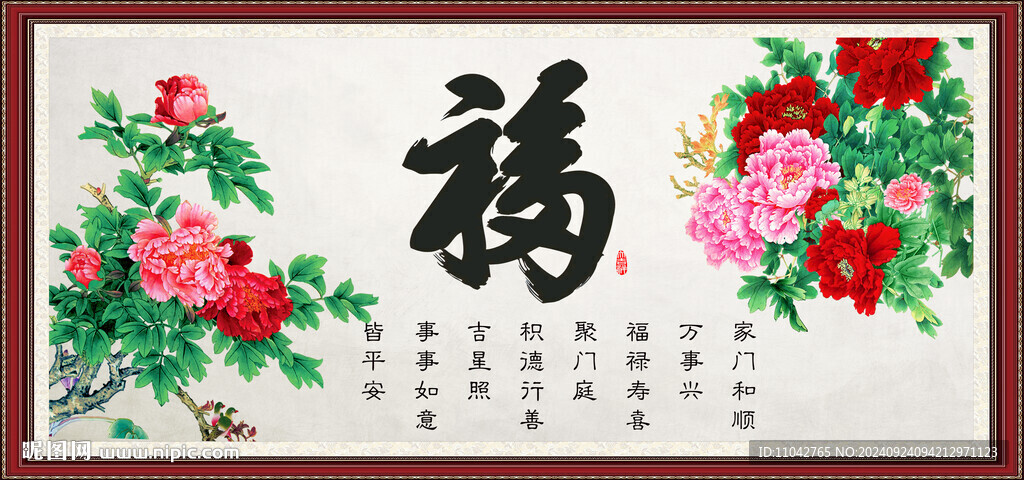 福
家门和顺
万事兴
福禄寿喜
聚门庭
积德行善
吉星照
事事如意
皆平安
昵图网 www.nipic.com
ID:11042765 NO:20240924094212971123